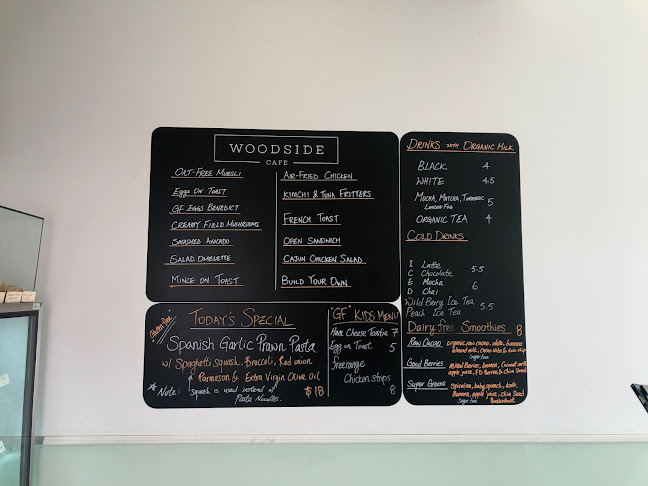 WOODSIDE
CAFE
OAT-FREE MUESLI
EGGS ON TOAST
GF EGGS BENEDICT
CREAMY FIELD MUSHROOMS
SMASHED AVOCADO
SALAD OMELETTE
MINCE ON TOAST
AIR-FRIED CHICKEN
KIMCHI & TUNA FRITTERS
FRENCH TOAST
OPEN SANDWICH
CAJUN CHICKEN SALAD
BUILD YOUR OWN
Gluten free
TODAY'S SPECIAL
Spanish Garlic Prawn Pasta
w/ Spaghetti squash, Broccoli, Red onion
Parmesan & Extra Virgin Olive Oil
Note: Squash is used instead of
Pasta Noodles.
$18
"GF" KIDS MENU
Ham Cheese Toastie 7
Egg on Toast 5
Freerange
Chicken strips
8
DRINKS WITH ORGANIC MILK
BLACK 4
WHITE 4.5
MOCHA, MATCHA, TURMERIC 5
ORGANIC TEA 4
COLD DRINKS
ICED
Latte
Chocolate 5.5
Mocha
Chai 6
Wild Berry Ice Tea
Peach Ice Tea 5.5
Dairy free Smoothies 8
Raw Cacao
organic raw cacao, dates, banana
almond milk, cacao nibs &
Sugar free
Good Berries
Mixed Berries, banana, Coconut
apple juice, F.D Berries & chia Seed
Super Greens
spirulina, baby spinach, kale,
Banana, apple juice, chia Seed
Sugar free Buckwheat